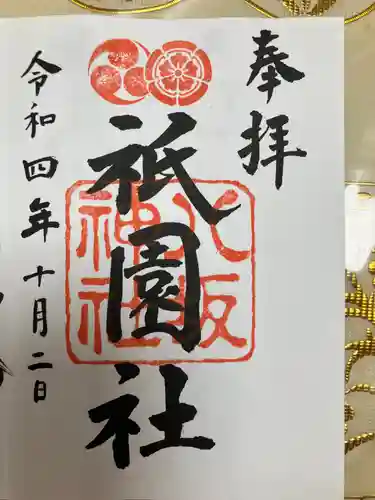 奉拝
八坂
神社
祇園社
令和四年十月二日